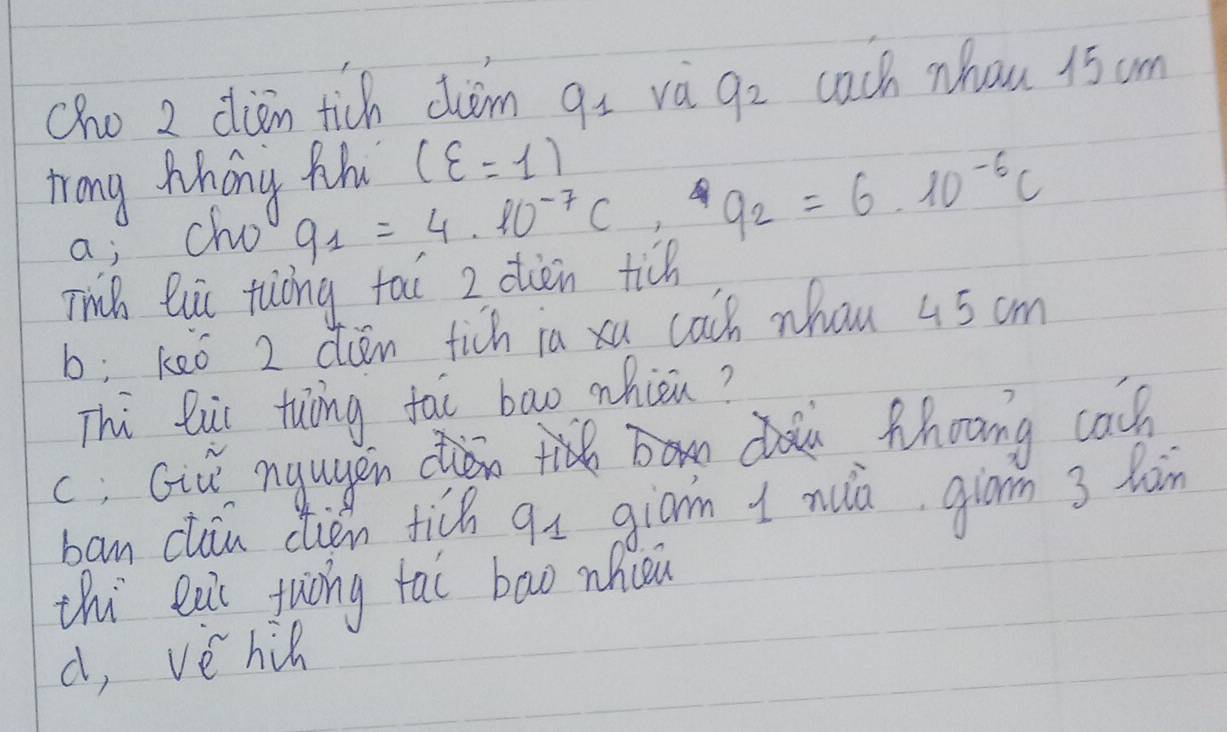 Cho 2 điện tích điểm q1 và q2 cách nhau 15 cm
trong không khí (ε = 1)
a; cho q1 = 4.10⁻⁷C, q2 = 6.10⁻⁶C
Tính lực tương tác 2 điện tích
b; kéo 2 điện tích ra xa cách nhau 45 cm
Thì lực tương tác bao nhiêu?
c; Giữ nguyên điện tích ban đầu khoảng cách
ban đầu điện tích q1 giảm 1 nửa. giảm 3 lần
thì lực tương tác bao nhiêu
d, vẽ hình